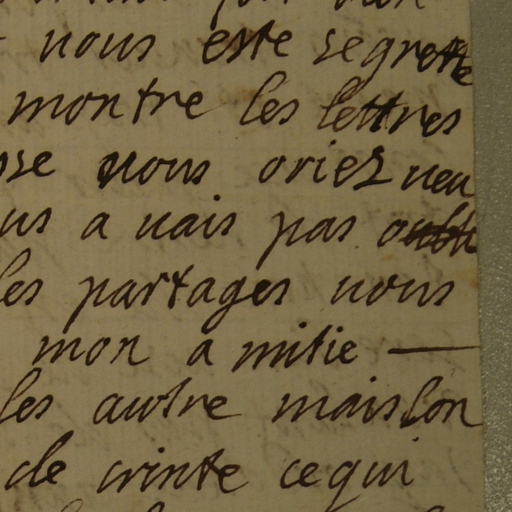 nous este regrette
montre les lettres
nous oriez veu
us a vais pas oublie
les partages nous
mon a mitie —
les autre mais lon
de crinte ce qui